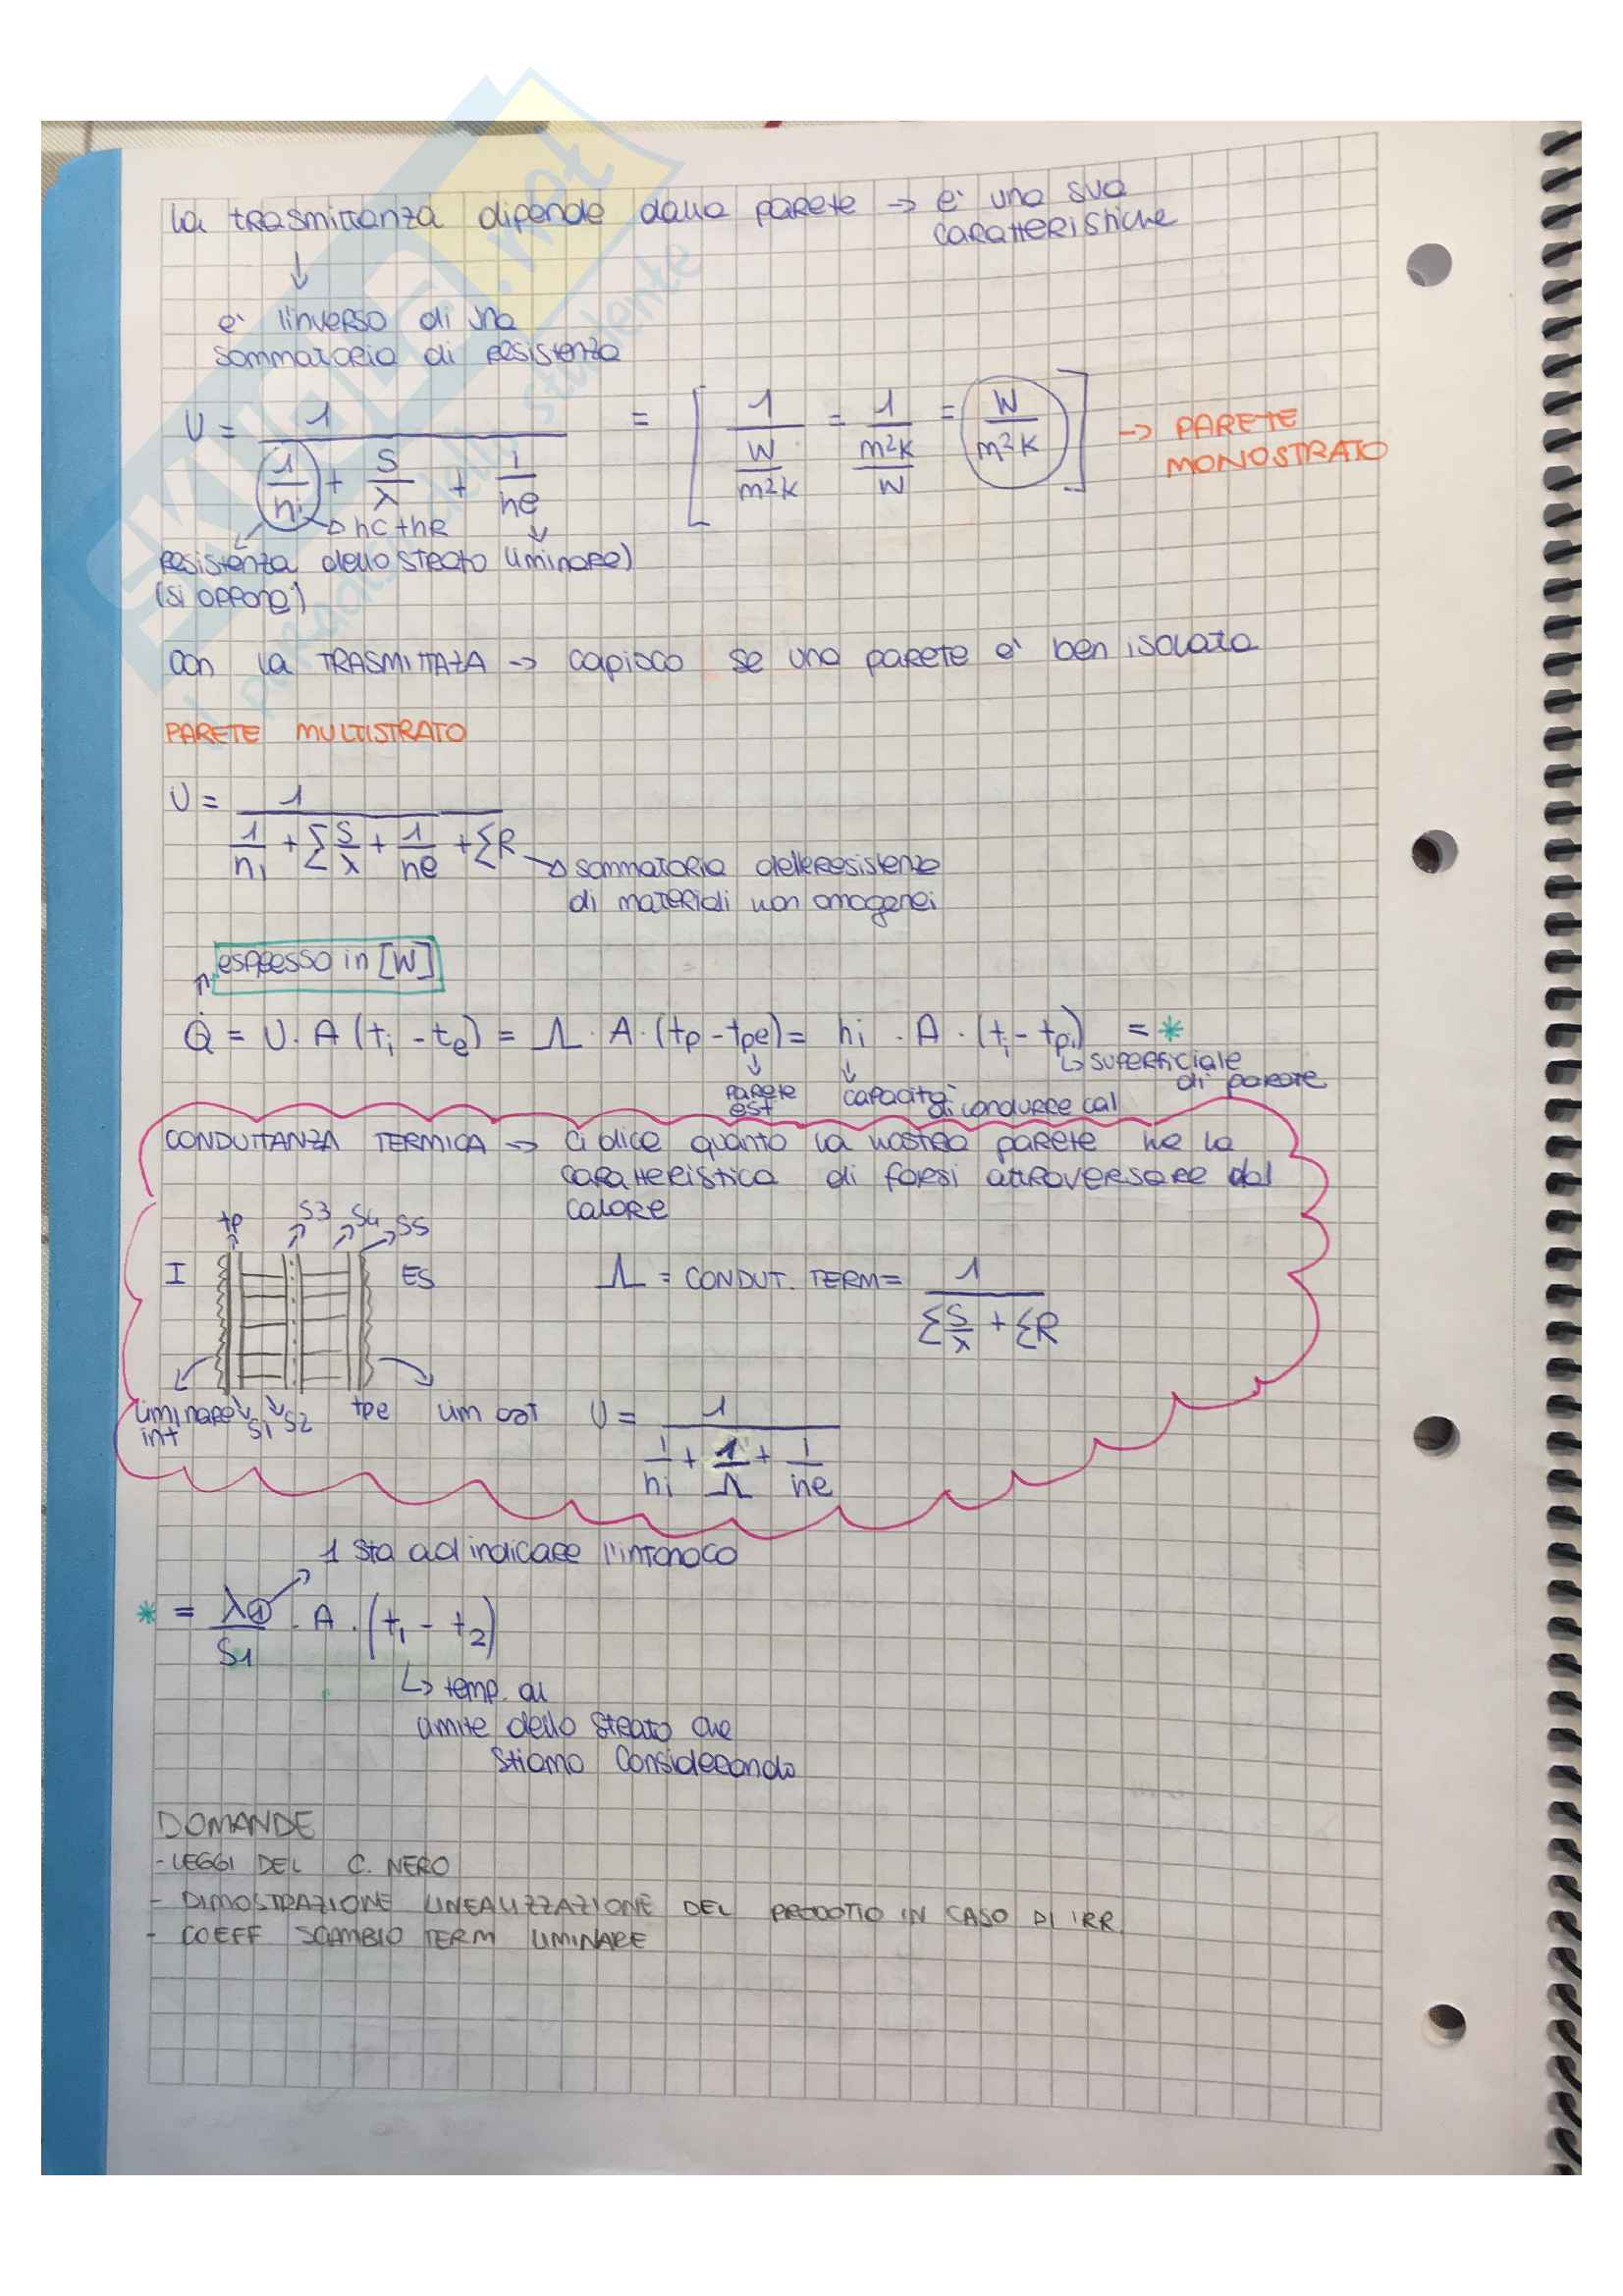 la TRASMITTANZA dipende dalla parete → è una sua
caratteristiche
↓
è l'inverso di una
sommatoria di resistenza
U = 1 / (1/hi + S/λ + 1/he) = [1 / (W/m²K) = 1 / (m²K/W) = W/m²K] → PARETE MONOSTRATO
→ hC+hR
resistenza dello strato liminare)
(si oppone)
con la TRASMITTAZA → capisco se una parete è ben isolata
PARETE MULTISTRATO
U = 1 / (1/hi + ΣS/λ + 1/he + ΣR)
→ sommatoria delle resistenze
di materiali non omogenei
espresso in [W]
Q̇ = U · A (ti - te) = Λ · A · (tp - tpe) = hi · A · (ti - tpi) = *
↳ superficiale
di parete
parete
est
capacità
di condurre cal
CONDUTTANZA TERMICA → ci dice quanto la nostra parete ha la
caratteristica di farsi attraversare dal
calore
tp S3 S4 S5
I ES
Λ = CONDUT. TERM = 1 / (ΣS/λ + ΣR)
liminare
int
S1 S2 tpe lim est
U = 1 / (1/hi + 1/Λ + 1/he)
1 sta ad indicare l'intonaco
* = λ1/S1 · A · (t1 - t2)
↳ temp. al
limite dello strato che
stiamo considerando
DOMANDE
- LEGGI DEL C. NERO
- DIMOSTRAZIONE LINEALIZZAZIONE DEL PRODOTTO IN CASO DI IRR.
- COEFF SCAMBIO TERM LIMINARE
SKUOLA.net